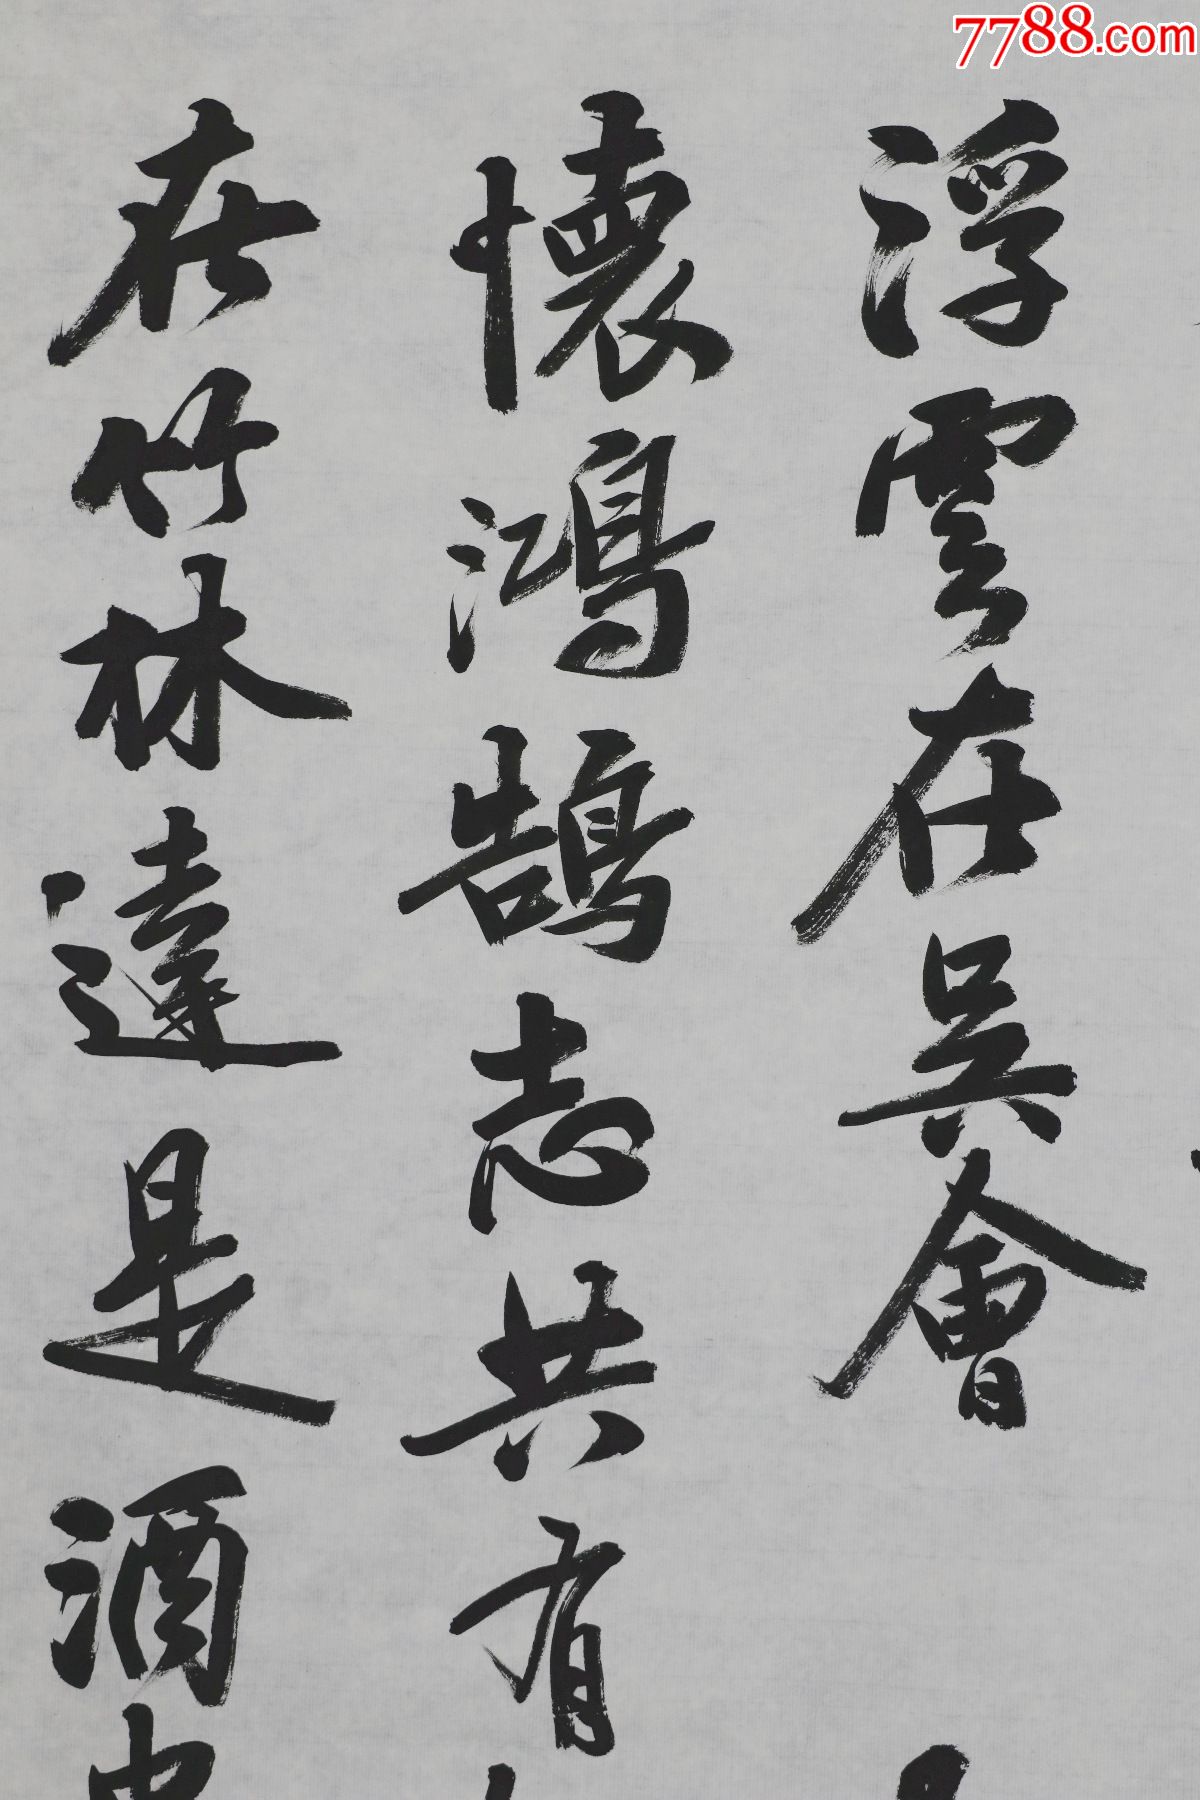 7788.com
浮雲在吳會
懷鴻鵠志共有
在竹林達是酒中